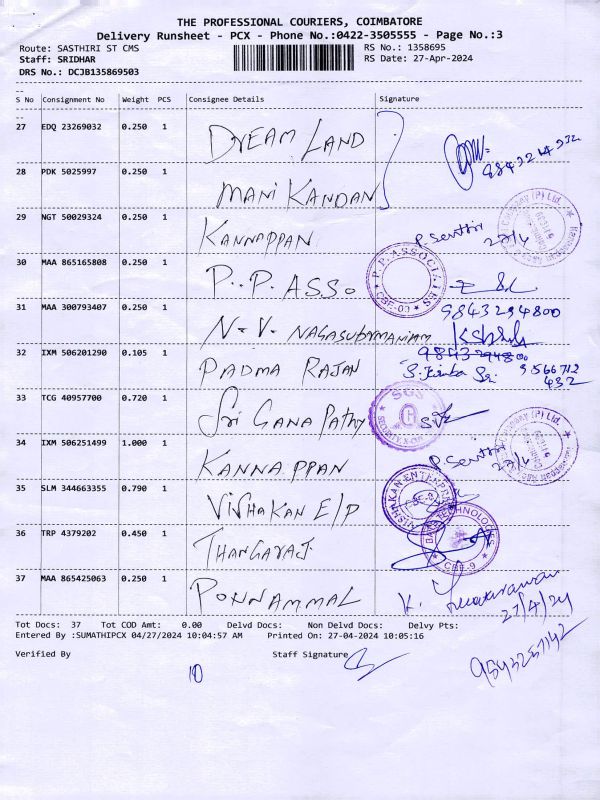 THE PROFESSIONAL COURIERS, COIMBATORE
Delivery Runsheet - PCX - Phone No.:0422-3505555 - Page No.:3
Route: SASTHIRI ST CMS RS No.: 1358695
Staff: SRIDHAR RS Date: 27-Apr-2024
DRS No.: DCJB135869503
S No Consignment No Weight PCS Consignee Details Signature
27 EDQ 23269032 0.250 1 DREAM LAND
28 PDK 5025997 0.250 1 MANI KANDAN
29 NGT 50029324 0.250 1 KANNAPPAN P. Senthil 27/4
30 MAA 865165808 0.250 1 P. P. ASSO P.P. ASSOCIATES CBE-09
31 MAA 300793407 0.250 1 N. V. NAGASUBRAMANIAM 9843294800
32 IXM 506201290 0.105 1 PADMA RAJAN 9566712 432
33 TCG 40957700 0.720 1 Sri GanaPathy SGS
34 IXM 506251499 1.000 1 KANNAPPAN P. Senthil 27/4
35 SLM 344663355 0.790 1 VISHAKAN E/P VISHAKAN ENTERPRISES
36 TRP 4379202 0.450 1 THANGARAJ TECHNOLOGIES CBE-9
37 MAA 865425063 0.250 1 PONNAMMAL K. 27/4/24
Tot Docs: 37 Tot COD Amt: 0.00 Delvd Docs: Non Delvd Docs: Delvy Pts:
Entered By :SUMATHIPCX 04/27/2024 10:04:57 AM Printed On: 27-04-2024 10:05:16
Verified By Staff Signature
10